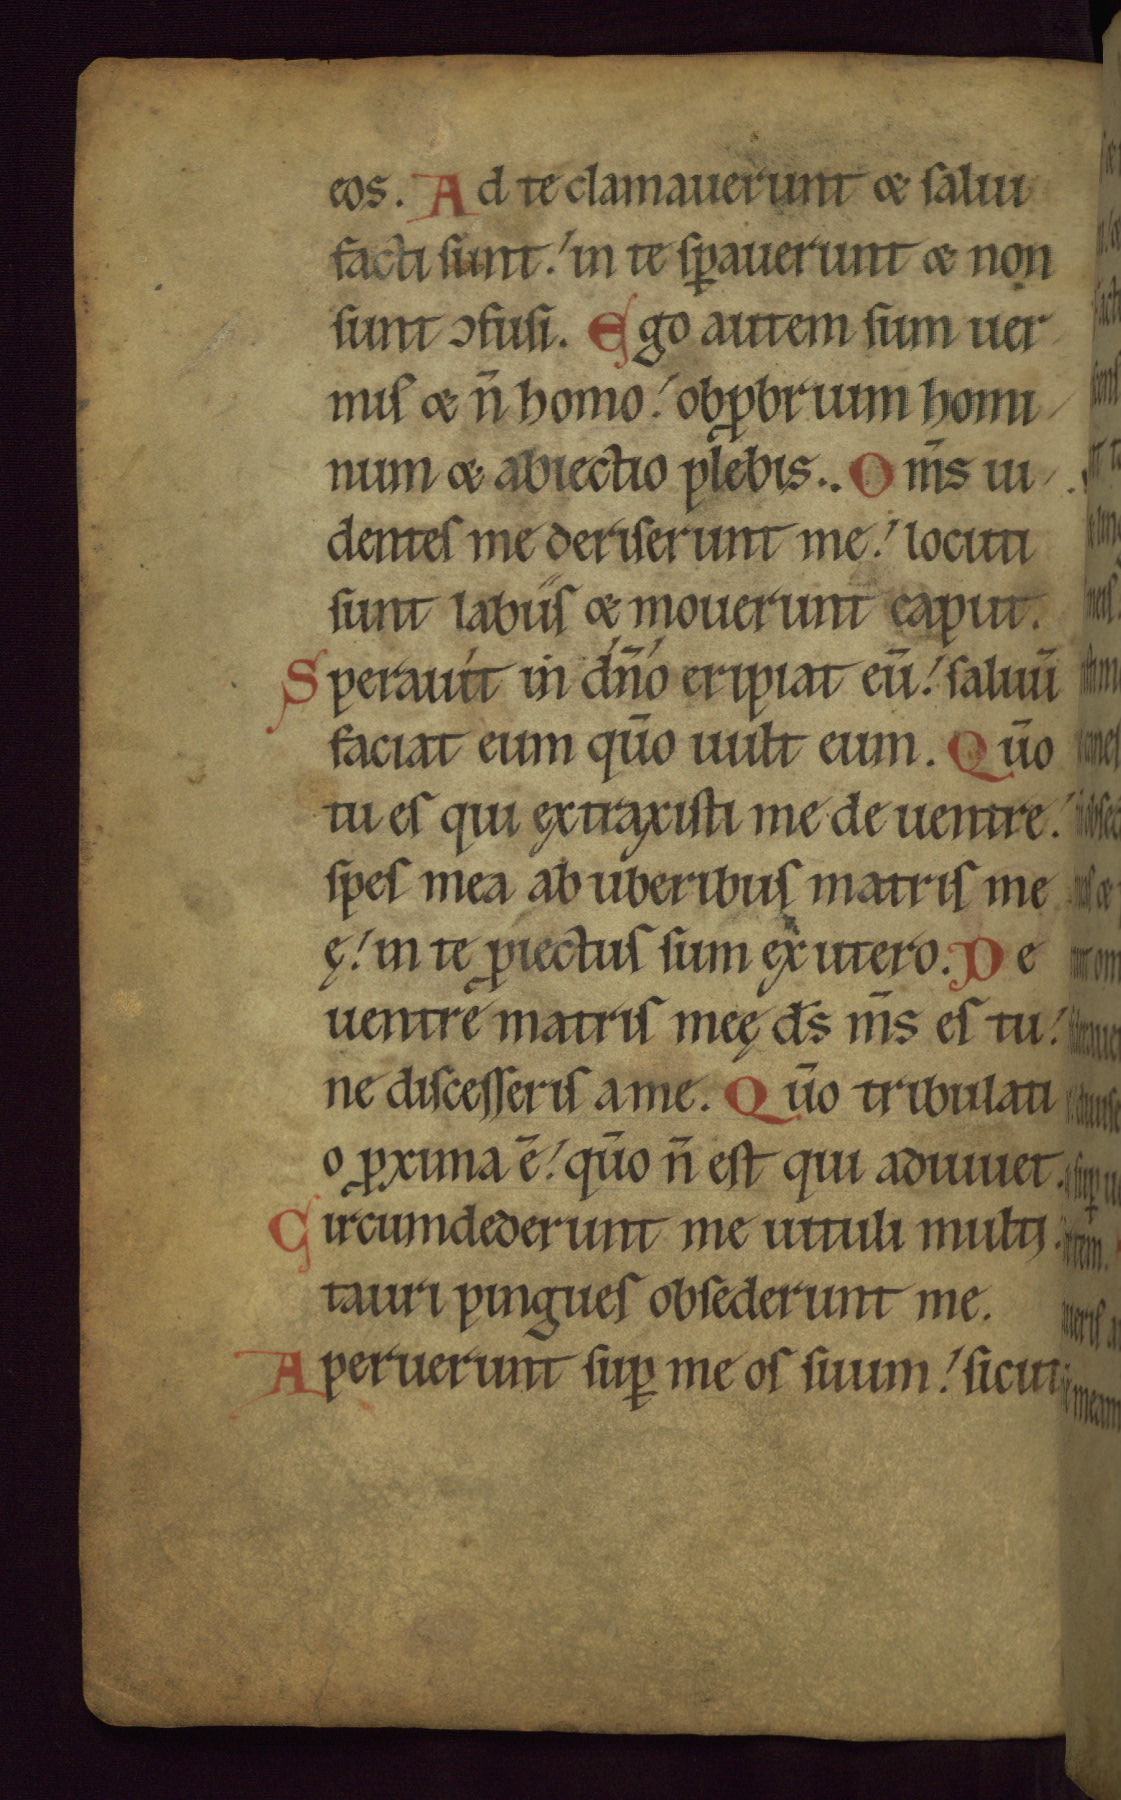 eos. Ad te clamauerunt & salui
facti sunt! in te sꝑauerunt & non
sunt ↄfusi. Ego autem sum uer
mis & n̄ homo! obꝓbrium homi
num & abiectio plebis.. Om̄s ui
dentes me deriserunt me! locuti
sunt labiis & mouerunt caput.
Sperauit in dn̄o eripiat eū! saluū
faciat eum qūo uult eum. Qūo
tu es qui extraxisti me de uentre!
spes mea ab uberibus matris me
ę! in te ꝓiectus sum ex utero. De
uentre matris meę ds̄ ms̄ es tu!
ne discesseris a me. Qūo tribulati
o ꝓxima ē! qūo n̄ est qui adiuuet.
Circumdederunt me uituli multi.
tauri pingues obsederunt me.
Aperuerunt suꝑ me os suum! sicut